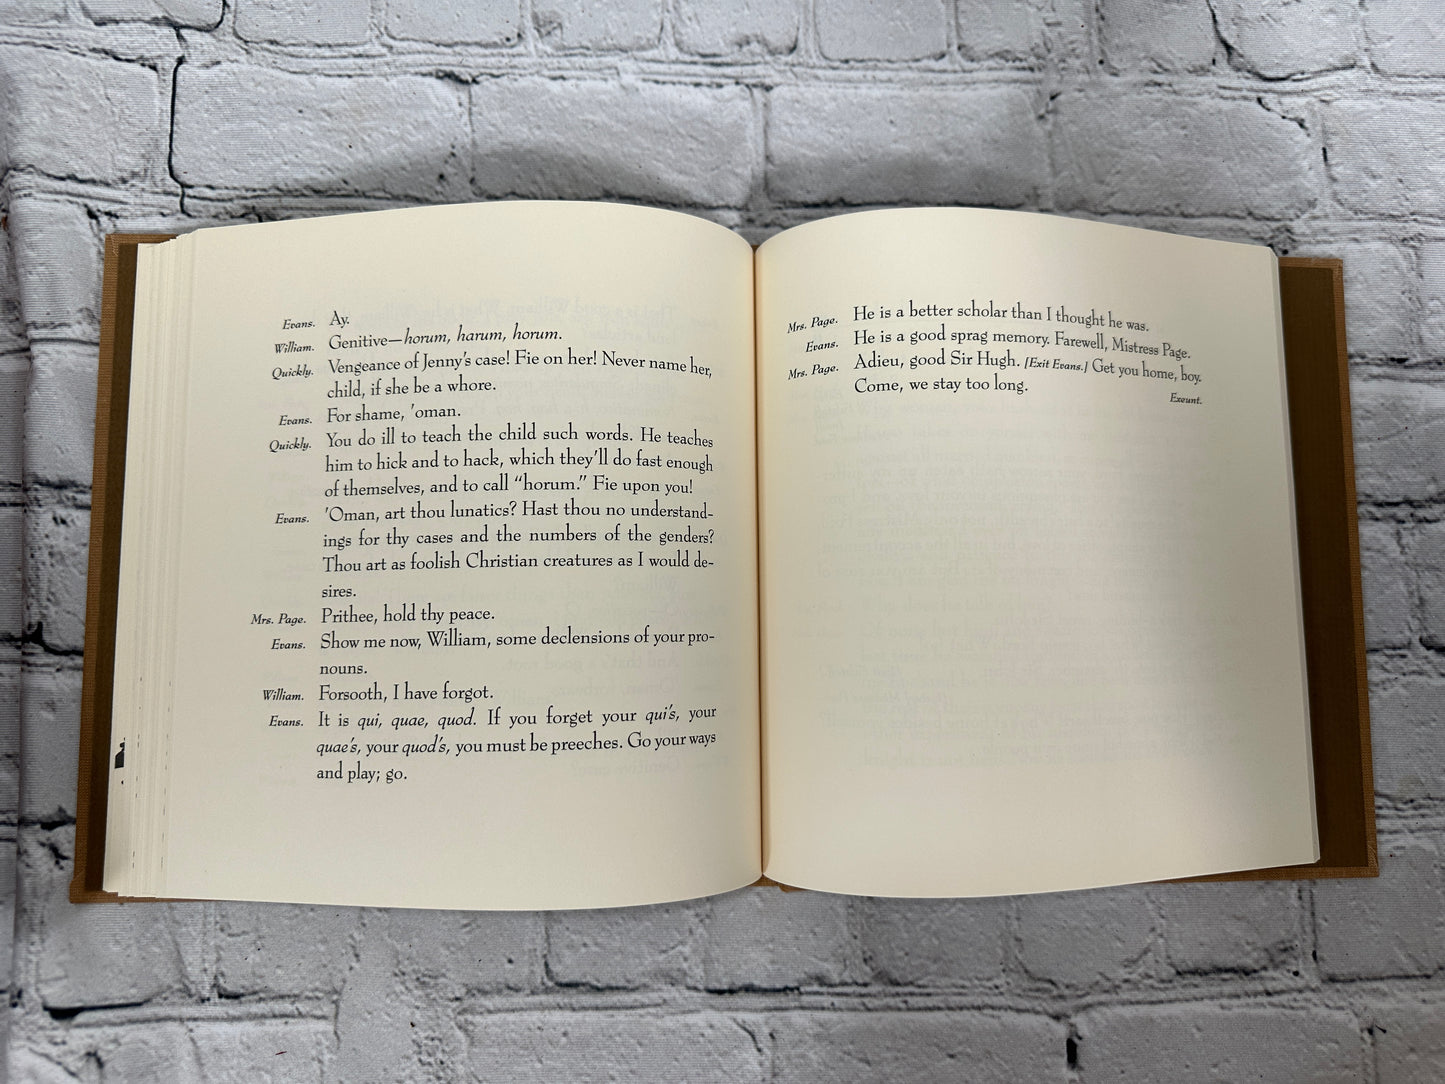 Evans. Ay.
William. Genitive—horum, harum, horum.
Quickly. Vengeance of Jenny's case! Fie on her! Never name her,
child, if she be a whore.
Evans. For shame, 'oman.
Quickly. You do ill to teach the child such words. He teaches
him to hick and to hack, which they'll do fast enough
of themselves, and to call “horum.” Fie upon you!
Evans. 'Oman, art thou lunatics? Hast thou no understand-
ings for thy cases and the numbers of the genders?
Thou art as foolish Christian creatures as I would de-
sires.
Mrs. Page. Prithee, hold thy peace.
Evans. Show me now, William, some declensions of your pro-
nouns.
William. Forsooth, I have forgot.
Evans. It is qui, quae, quod. If you forget your qui's, your
quae's, your quod's, you must be preeches. Go your ways
and play; go.
Mrs. Page. He is a better scholar than I thought he was.
Evans. He is a good sprag memory. Farewell, Mistress Page.
Mrs. Page. Adieu, good Sir Hugh. [Exit Evans.] Get you home, boy.
Come, we stay too long.
Exeunt.